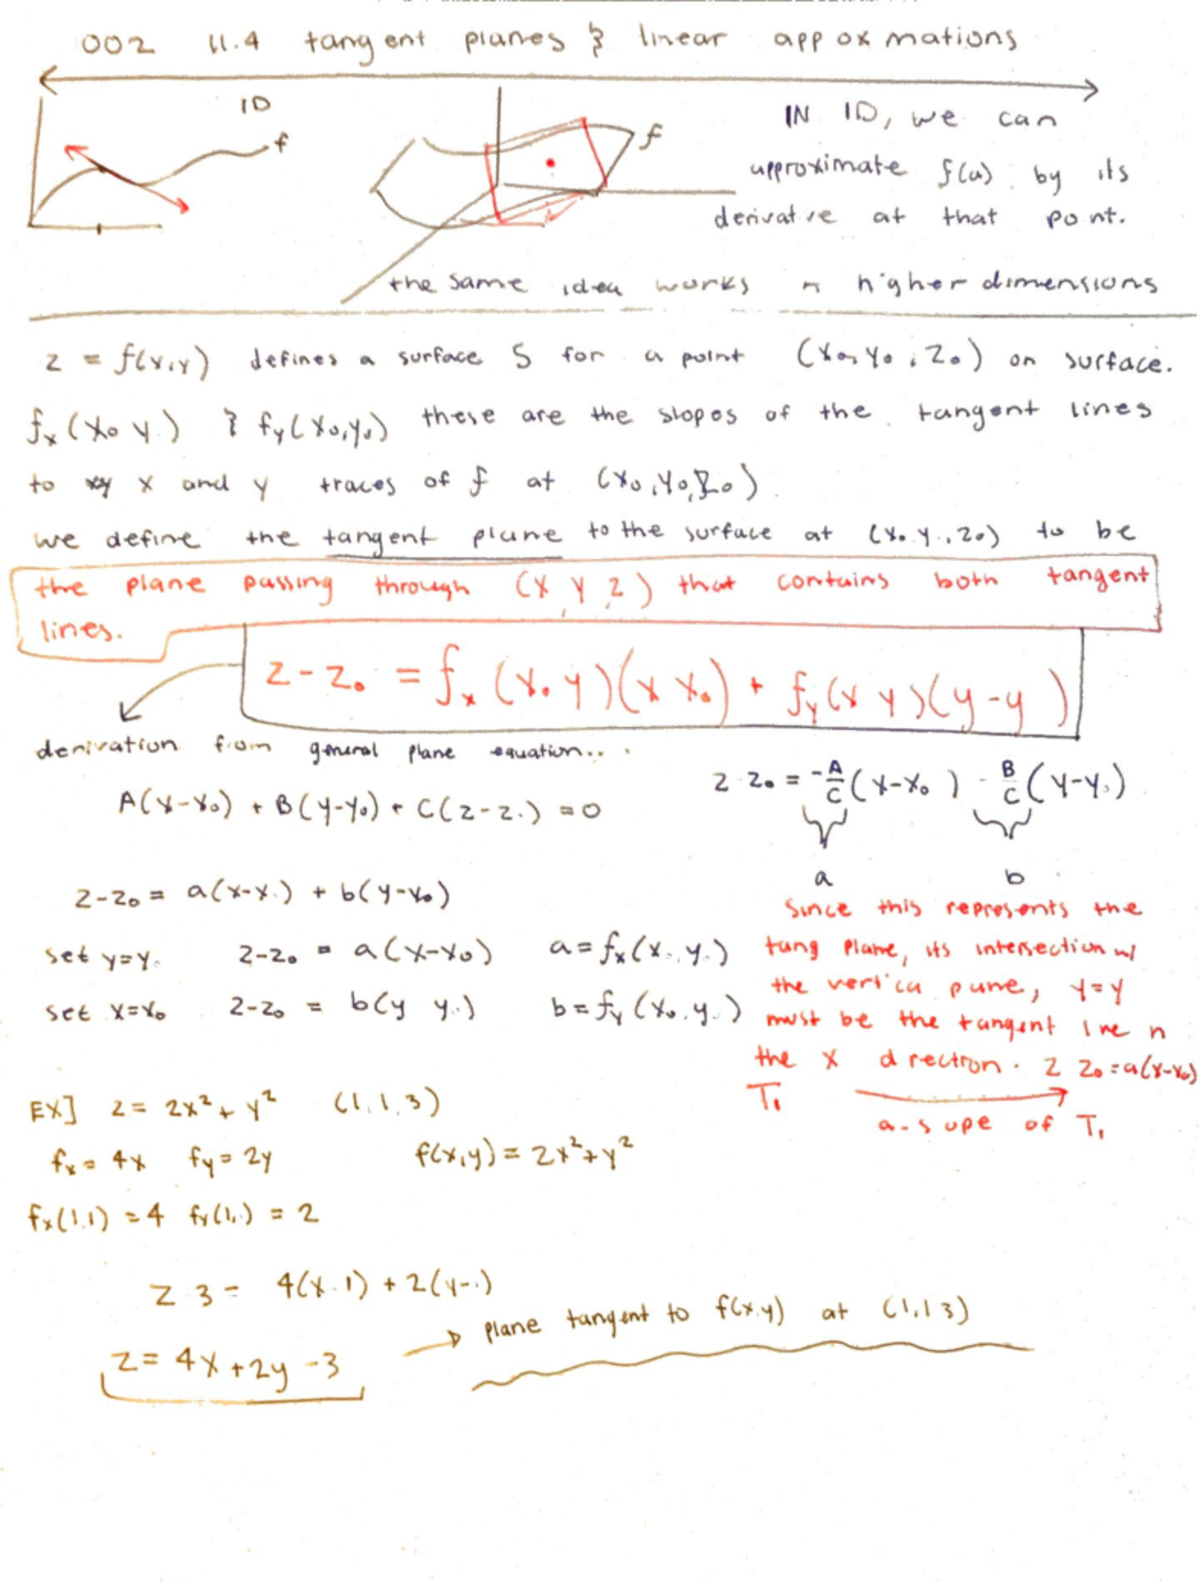 002 11.4 tangent planes & linear appoxmations
1D
f
f
IN 1D, we can
approximate f(a) by its
derivative at that point.
the same idea works in higher dimensions
z = f(x,y) defines a surface S for a point (x₀, y₀, z₀) on surface.
fₓ(x₀ y.) & fᵧ(x₀,y₀) these are the slopes of the tangent lines
to x and y traces of f at (x₀,y₀,z₀)
we define the tangent plane to the surface at (x₀ y., z₀) to be
the plane passing through (x, y, z) that contains both tangent
lines.
z-z₀ = fₓ(x₀ y)(x x₀) + fᵧ(x y)(y-y )
derivation from general plane equation...
A(x-x₀) + B(y-y₀) + C(z-z.) = 0
z z₀ = -A/C (x-x₀) - B/C (y-y.)
a b
z-z₀ = a(x-x.) + b(y-y₀)
set y=y. z-z₀ = a(x-x₀) a=fₓ(x., y.)
set x=x₀ z-z₀ = b(y y.) b=fᵧ(x₀, y.)
Since this represents the
tang plane, its intersection w/
the vertica pane, y=y
must be the tangent line n
the x drection. z z₀=a(x-x₀)
T₁
a-sope of T₁
EX] z = 2x² + y² (1,1,3)
fₓ = 4x fᵧ = 2y f(x,y) = 2x²+y²
fₓ(1,1) = 4 fᵧ(1,.) = 2
z 3 = 4(x-1) + 2(y-.)
z = 4x+2y-3
plane tangent to f(x,y) at (1,1 3)